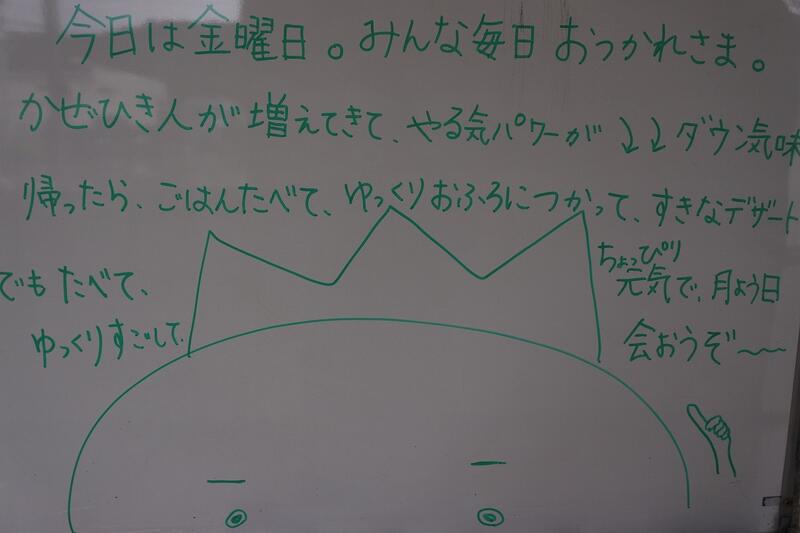 今日は金曜日。みんな毎日おつかれさま。
かぜひき人が増えてきて、やる気パワーが↓↓ダウン気味
帰ったら、ごはんたべて、ゆっくりおふろにつかって、すきなデザート
でもたべて、
ゆっくりすごして、
ちょっぴり
元気で、月よう日
会おうぜ〜〜